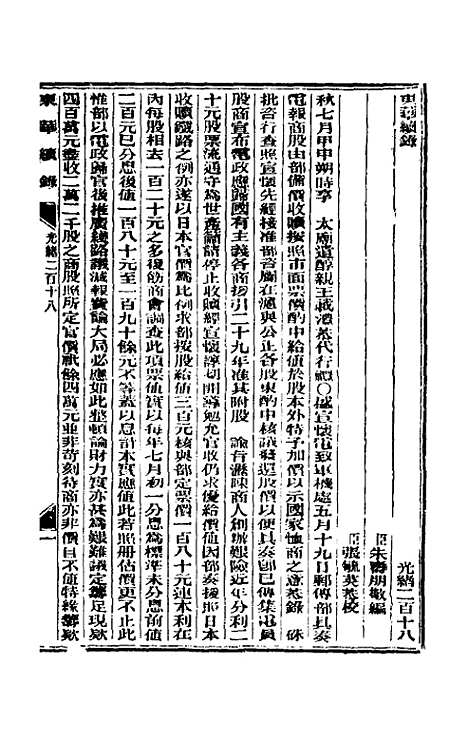 東華續錄
光緒二百十八
臣朱壽朋敬編
臣張毓英恭校
秋七月甲申朔時享 太廟遣醇親王載灃恭代行禮○盛宣懷電致軍機處五月十九日郵傳部具奏
電報商股由部備價收贖按照市面票價酌中給値於股本外特予加價以示國家恤商之意恭錄 硃
批咨行查照宣懷先經接准部咨廣在滬與公正各股東酌中核議發還股價以便具奏卽已傳集電員
股商宣布電政應歸國有主義各商援引二十九年准其附股 諭旨瀝陳商人創辦艱險近年分利二
十元股票流通守爲世產籲請停止收贖經宣懷諄切開導勉允官收仍求優給價值因部奏援照日本
收贖鐵路之例亦遂以日本官價爲比例求部按股給値三百元核與部定票價一百八十元連本利在
內每股相去一百二十元之多復飭商會調查此項票値實以每年七月初一分息爲標準未分息前値
二百元已分息後値一百八十元至一百九十餘元不等蓋以息計本實應値此若照册估價更不止此
惟部以電政歸官後推廣綫路議減報費論大局必應如此整頓論財力實亦甚爲艱難議定籌足現款
四百萬元盡收二萬二千股之商股照所定官價祇餘四萬元並非苛刻待商亦非價目不值特緣籌款
東華續錄 光緒二百十八 一